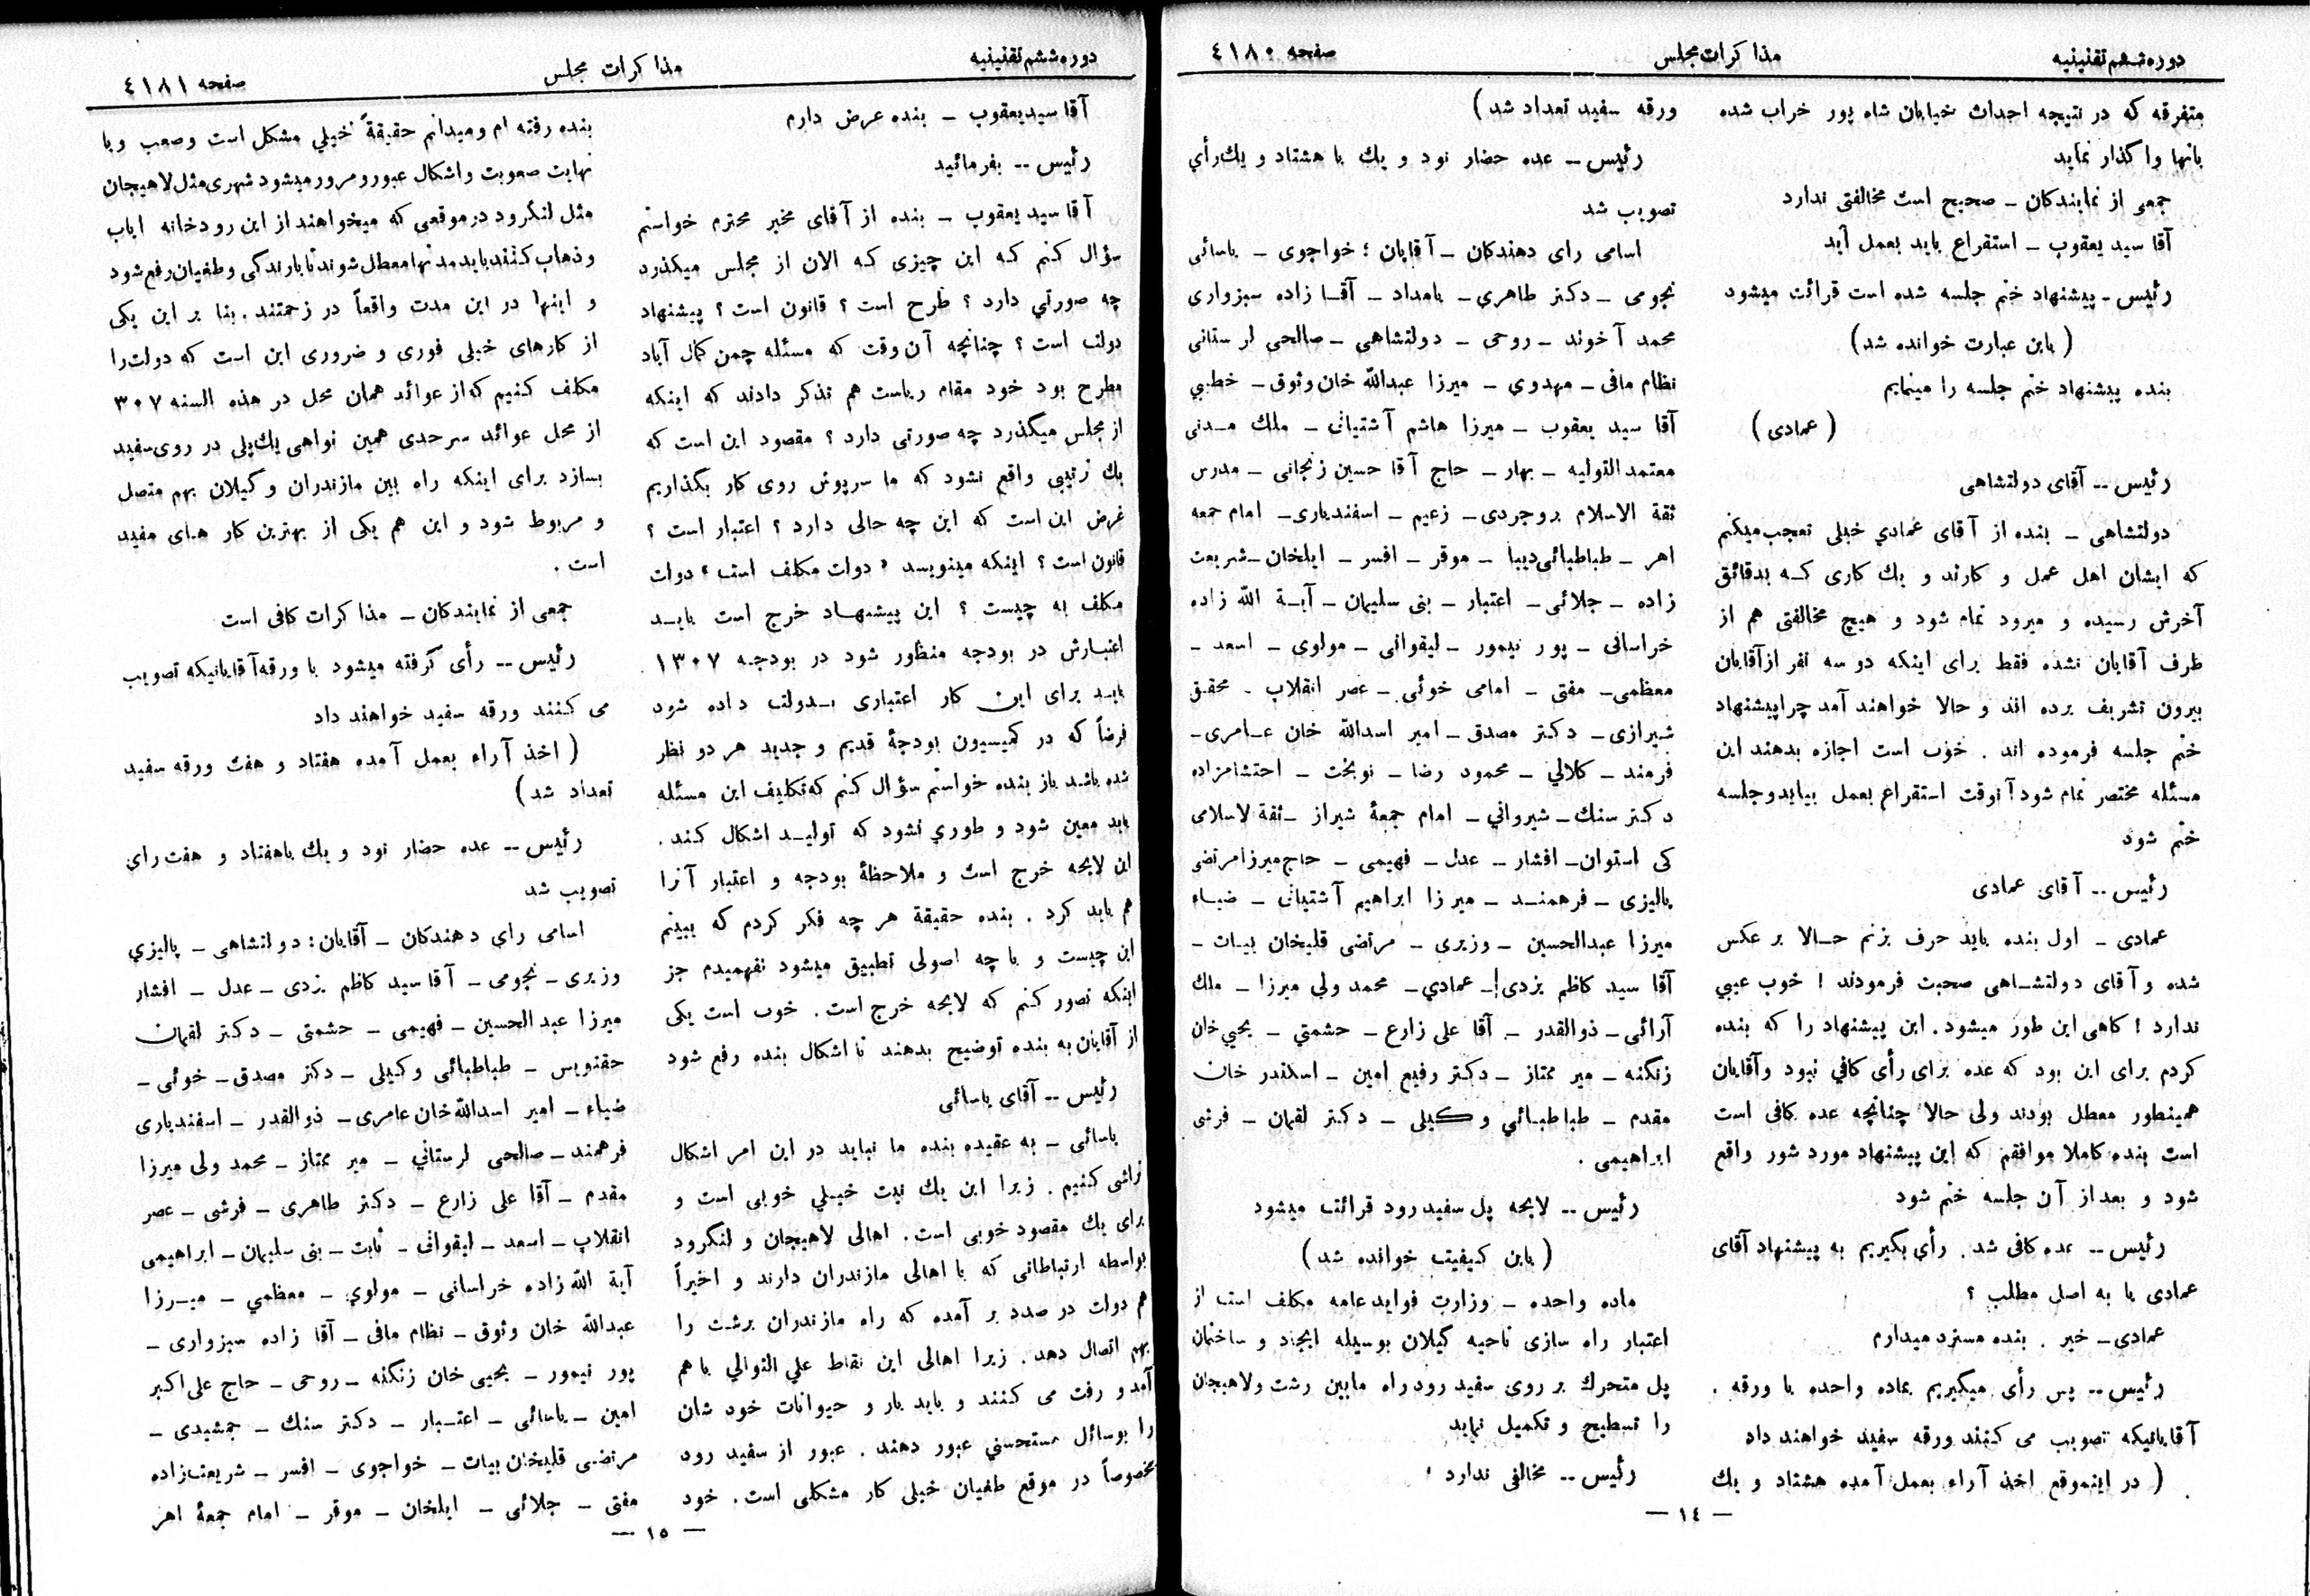 دوره ششم تقنینیه
مذاکرات مجلس
صفحه ٤١٨٠
متفرقه که در نتیجه احداث خیابان شاه پور خراب شده
بانها واگذار نماید
جمعی از نمایندگان ـ صحیح است مخالفتی ندارد
آقا سید یعقوب ـ استقراع باید بعمل آید
رئیس ـ پیشنهاد ختم جلسه شده است قرائت میشود
( باین عبارت خوانده شد )
بنده پیشنهاد ختم جلسه را مینمایم
( عمادی )
رئیس ـ آقای دولتشاهی
دولتشاهی ـ بنده از آقای عمادي خیلی تعجب میکنم
که ایشان اهل عمل و کارند و یك کاری که بدقائق
آخرش رسیده و میرود تمام شود و هیچ مخالفتی هم از
طرف آقایان نشده فقط برای اینکه دو سه نفر از آقایان
بیرون تشریف برده اند و حالا خواهند آمد چرا پیشنهاد
ختم جلسه فرموده اند . خوب است اجازه بدهند این
مسئله مختصر تمام شود آنوقت استقراع بعمل بیاید و جلسه
ختم شود
رئیس ـ آقای عمادی
عمادی ـ اول بنده باید حرف بزنم حالا بر عکس
شده و آقای دولتشاهی صحبت فرمودند ! خوب عیبی
ندارد ! کاهی این طور میشود . این پیشنهاد را که بنده
کردم برای این بود که عده برای رأی کافي نبود و آقایان
همینطور معطل بودند ولی حالا چنانچه عده کافی است
است بنده کاملا موافقم که این پیشنهاد مورد شور واقع
شود و بعد از آن جلسه ختم شود
رئیس ـ عده کافی شد . رأی بگیریم به پیشنهاد آقای
عمادی یا به اصل مطلب ؟
عمادی ـ خیر . بنده مسترد میدارم
رئیس ـ پس رأی میگیریم بماده واحده با ورقه .
آقایانیکه تصویب می کنند ورقه سفید خواهند داد
( در اینموقع اخذ آراء بعمل آمده هشتاد و یك
ورقه سفید تعداد شد )
رئیس ـ عده حضار نود و یك با هشتاد و یك رأي
تصویب شد
اسامی رای دهندکان ـ آقایان : خواجوی ـ یاسائی
نجومی ـ دکتر طاهري ـ بامداد ـ آقا زاده سبزواری
محمد آخوند ـ روحی ـ دولتشاهی ـ صالحی لرستانی
نظام مافی ـ مهدوي ـ میرزا عبدالله خان وثوق ـ خطیبي
آقا سید یعقوب ـ میرزا هاشم آشتیانی ـ ملك مدنی
معتمد التولیه ـ بهار ـ حاج آقا حسین زنجانی ـ مدرس
ثقة الاسلام بروجردی ـ زعیم ـ اسفندیاری ـ امام جمعه
اهر ـ طباطبائی دیبا ـ موقر ـ افسر ـ ایلخان ـ شریعت
زاده ـ جلائی ـ اعتبار ـ بنی سلیمان ـ آیة الله زاده
خراسانی ـ پور تیمور ـ لیقوانی ـ مولوی ـ اسعد ـ
معظمی ـ مفتی ـ امامی خوئی ـ عصر انقلاب ـ محقق
شیرازی ـ دکتر مصدق ـ امیر اسدالله خان عامری ـ
فرمند ـ کلالي ـ محمود رضا ـ نوبخت ـ احتشامزاده
دکتر سنك ـ شیرواني ـ امام جمعهٔ شیراز ـ ثقة لاسلامی
کی استوان ـ افشار ـ عدل ـ فهیمی ـ حاج میرزا مرتضی
پالیزی ـ فرهمند ـ میرزا ابراهیم آشتیانی ـ ضیاء
میرزا عبدالحسین ـ وزیری ـ مرتضی قلیخان بیات ـ
آقا سید کاظم یزدی ـ عمادي ـ محمد ولی میرزا ـ ملك
آرائی ـ ذوالقدر ـ آقا علی زارع ـ حشمتي ـ یحیي خان
زنگنه ـ میر ممتاز ـ دکتر رفیع امین ـ اسکندر خان
مقدم ـ طباطبائي وکیلی ـ دکتر لقمان ـ فرشی
ابراهیمی .
رئیس ـ لایحه پل سفید رود قرائت میشود
( باین کیفیت خوانده شد )
ماده واحده ـ وزارت فواید عامه مکلف است از
اعتبار راه سازی ناحیه گیلان بوسیله ایجاد و ساختمان
پل متحرك بر روی سفید رود راه مابین رشت و لاهیجان
را تسطیح و تکمیل نماید
رئیس ـ مخالفی ندارد ؟
ـ ١٤ ـ
دوره ششم تقنینیه
مذاکرات مجلس
صفحه ٤١٨١
آقا سید یعقوب ـ بنده عرض دارم
رئیس ـ بفرمائید
آقا سید یعقوب ـ بنده از آقای مخبر محترم خواستم
سؤال کنم که این چیزی که الان از مجلس میکذرد
چه صورتي دارد ؟ طرح است ؟ قانون است ؟ پیشنهاد
دولت است ؟ چنانچه آن وقت که مسئله چمن کمال آباد
مطرح بود خود مقام ریاست هم تذکر دادند که اینکه
از مجلس میگذرد چه صورتی دارد ؟ مقصود این است که
یك ترتیبی واقع نشود که ما سرپوش روی کار بگذاریم
غرض این است که این چه حالی دارد ؟ اعتبار است ؟
قانون است ؟ اینکه مینویسد « دولت مکلف است » دولت
مکلف به چیست ؟ این پیشنهاد خرج است باید
اعتبارش در بودجه منظور شود در بودجه ١٣٠٧
باید برای این کار اعتباری بدولت داده شود
فرضاً که در کمیسیون بودجهٔ قدیم و جدید هر دو نظر
شده باشد باز بنده خواستم سؤال کنم که تکلیف این مسئله
باید معین شود و طوري نشود که تولید اشکال کند .
این لایحه خرج است و ملاحظهٔ بودجه و اعتبار آنرا
هم باید کرد . بنده حقیقة هر چه فکر کردم که ببینم
این چیست و با چه اصولی تطبیق میشود نفهمیدم جز
اینکه تصور کنم که لایحه خرج است . خوب است یکی
از آقایان به بنده توضیح بدهند تا اشکال بنده رفع شود
رئیس ـ آقای یاسائی
یاسائی ـ به عقیده بنده ما نباید در این امر اشکال
تراشی کنیم . زیرا این یك نیت خیلي خوبی است و
برای یك مقصود خوبی است . اهالی لاهیجان و لنگرود
بواسطه ارتباطاتی که با اهالی مازندران دارند و اخیراً
هم دولت در صدد بر آمده که راه مازندران برشت را
بهم اتصال دهد . زیرا اهالی این نقاط علي التوالي با هم
آمد و رفت می کنند و باید بار و حیوانات خود شان
را بوسائل مستحسني عبور دهند . عبور از سفید رود
مخصوصاً در موقع طغیان خیلی کار مشکلی است . خود
بنده رفته ام و میدانم حقیقةً خیلي مشکل است و صعب و با
نهایت صعوبت و اشکال عبور و مرور میشود شهری مثل لاهیجان
مثل لنگرود در موقعی که میخواهند از این رودخانه ایاب
و ذهاب کنند باید مدتها معطل شوند تا بارندگی و طغیان رفع شود
و اینها در این مدت واقعاً در زحمتند . بنا بر این یکی
از کارهای خیلی فوری و ضروری این است که دولت را
مکلف کنیم که از عوائد همان محل در هذه السنه ٣٠٧
از محل عوائد سرحدی همین نواهی یك پلی در روی سفید
بسازد برای اینکه راه بین مازندران و گیلان بهم متصل
و مربوط شود و این هم یکی از بهترین کار های مفید
است .
جمعی از نمایندکان ـ مذاکرات کافی است
رئیس ـ رأی گرفته میشود با ورقه آقایانیکه تصویب
می کنند ورقه سفید خواهند داد
( اخذ آراء بعمل آمده هفتاد و هفت ورقه سفید
تعداد شد )
رئیس ـ عده حضار نود و یك با هفتاد و هفت رای
تصویب شد
اسامی رای دهندکان ـ آقایان : دولتشاهی ـ پالیزي
وزیری ـ نجومی ـ آقا سید کاظم یزدی ـ عدل ـ افشار
میرزا عبدالحسین ـ فهیمی ـ حشمتی ـ دکتر لقمان
حقنویس ـ طباطبائی وکیلی ـ دکتر مصدق ـ خوئی ـ
ضیاء ـ امیر اسدالله خان عامری ـ ذوالقدر ـ اسفندیاری
فرهمند ـ صالحی لرستاني ـ میر ممتاز ـ محمد ولی میرزا
مقدم ـ آقا علی زارع ـ دکتر طاهری ـ فرشی ـ عصر
انقلاب ـ اسعد ـ لیقوانی ـ ثابت ـ بنی سلیمان ـ ابراهیمی
آیة الله زاده خراسانی ـ مولوي ـ معظمي ـ میرزا
عبدالله خان وثوق ـ نظام مافی ـ آقا زاده سبزواری ـ
پور تیمور ـ یحیی خان زنگنه ـ روحی ـ حاج علی اکبر
امین ـ یاسائی ـ اعتبار ـ دکتر سنك ـ جمشیدی ـ
مرتضی قلیخان بیات ـ خواجوی ـ افسر ـ شریعت زاده
مفتی ـ جلائی ـ ایلخان ـ موقر ـ امام جمعهٔ اهر
ـ ١٥ ـ